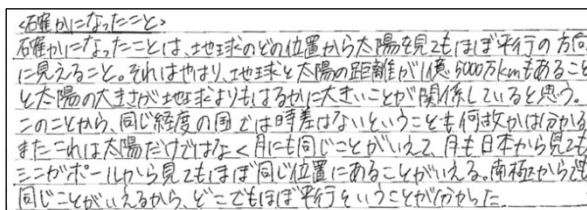 <確かになったこと>
確かになったことは、地球のどの位置から太陽を見てもほぼ平行の方向
に見えること。それはやはり、地球と太陽の距離が1億5000万kmもあること
と太陽の大きさが地球よりもはるかに大きいことが関係していると思う。
このことから、同じ経度の国では時差はないということも何故かは分かる。
またこれは太陽だけではなく月にも同じことがいえて、月も日本から見ても
シンガポールから見てもほぼ同じ位置にあることがいえる。南極からでも
同じことがいえるから、どこでもほぼ平行ということが分かった。